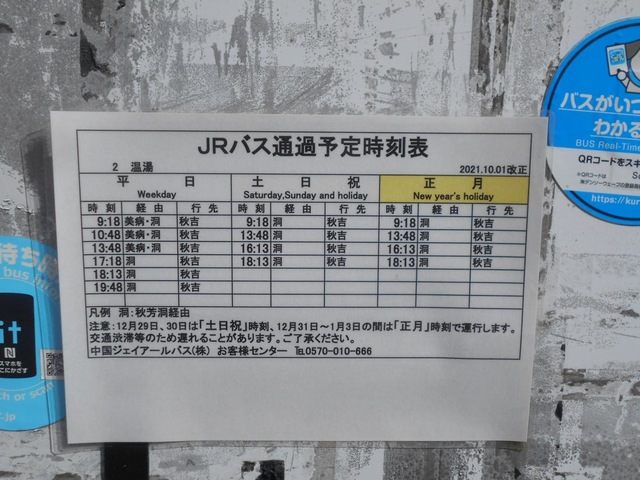 JRバス通過予定時刻表
2 温湯 2021.10.01改正
平 日 土 日 祝 正 月
Weekday Saturday,Sunday and holiday New year's holiday
時刻 経由 行先 時刻 経由 行先 時刻 経由 行先
9:18 美病・洞 秋吉 9:18 洞 秋吉 9:18 洞 秋吉
10:48 美病・洞 秋吉 13:48 洞 秋吉 13:48 洞 秋吉
13:48 美病・洞 秋吉 16:13 洞 秋吉 16:13 洞 秋吉
17:18 洞 秋吉 18:13 洞 秋吉 18:13 洞 秋吉
18:13 秋吉
19:48 秋吉
凡例 洞:秋芳洞経由
注意:12月29日、30日は「土日祝」時刻、12月31日～1月3日の間は「正月」時刻で運行します。
交通渋滞等のため遅れることがあります。ご了承ください。
中国ジェイアールバス(株) お客様センター ℡0570-010-666
バスがいつ
わかる
BUS Real-Time
QRコードをスキ
https://kur
待ち
bus
it
N
スマホを
こにかざす
ch or scan